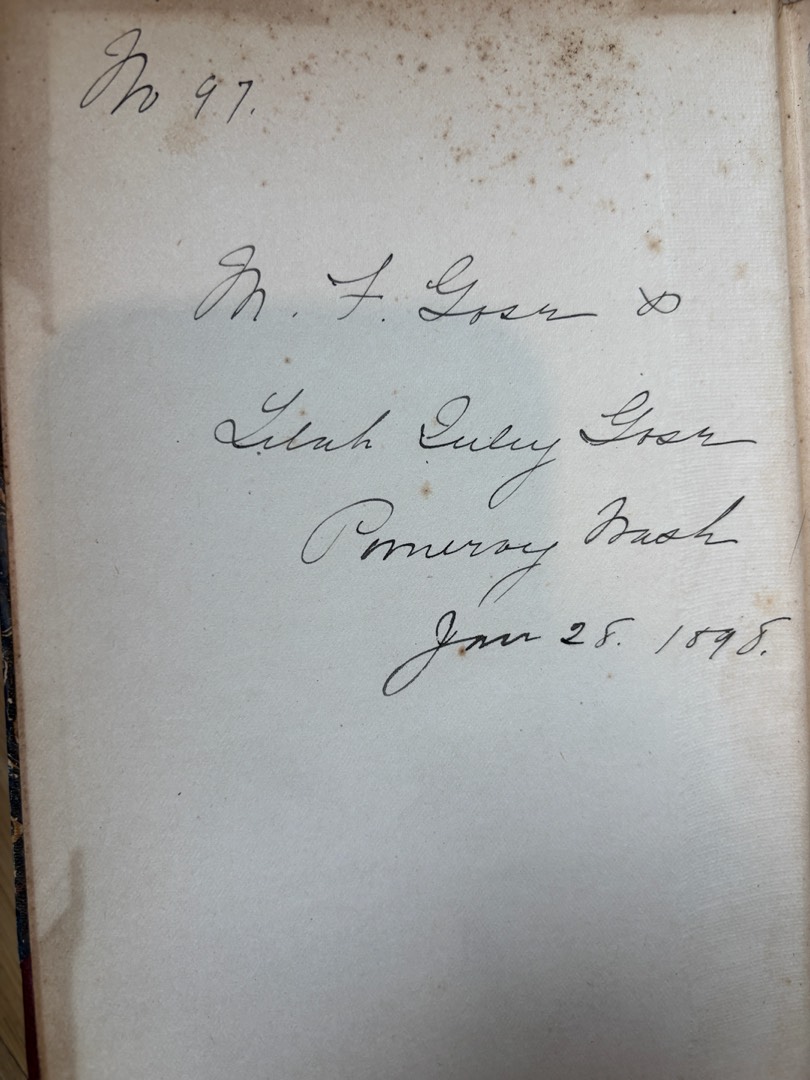 No 97.
M. F. Gose &
Lelah Gose
Pomeroy Wash
Jan 28. 1898.